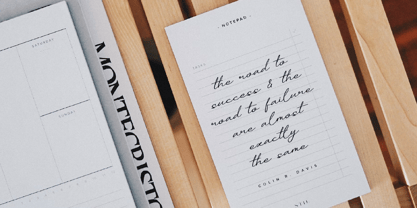 SATURDAY
SUNDAY
MONTECRISTO
· NOTEPAD ·
the road to
success & the
road to failure
are almost
exactly
the same
COLIN R. DAVIS